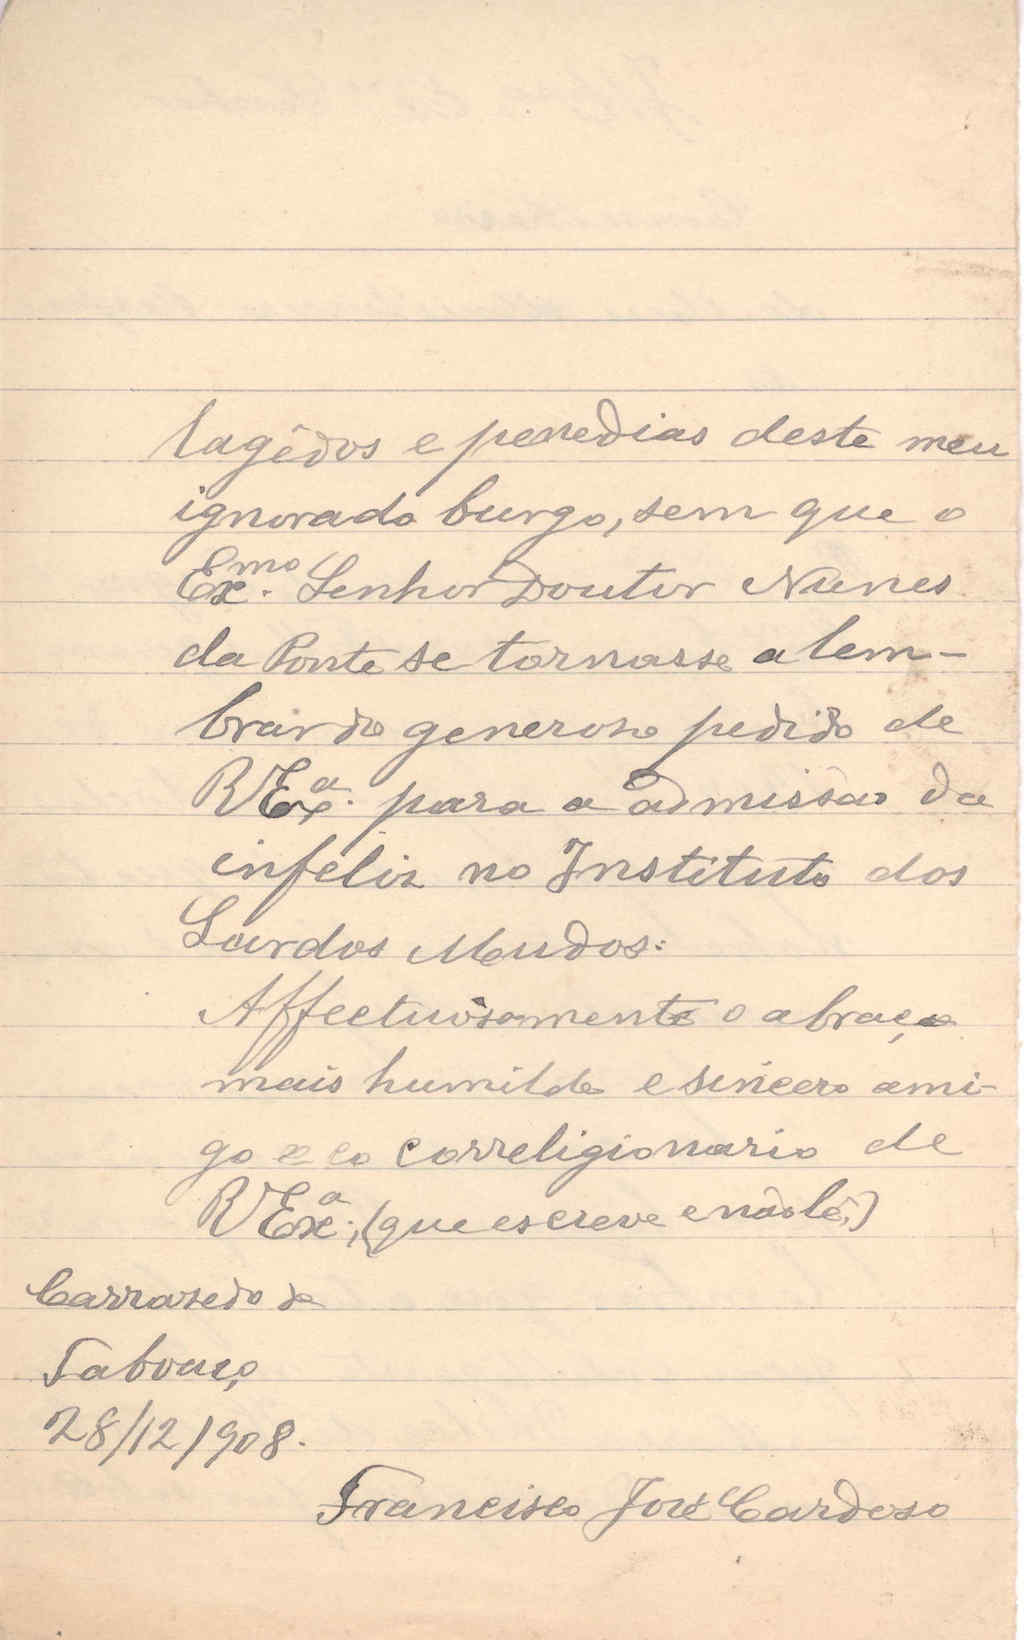 lagêdos e penedias deste meu
ignorado burgo, sem que o
Ex.mo Senhor Doutor Nunes
da Ponte se tornasse a lem-
brar do generoso pedido de
V Ex.a para a admissão da
infeliz no Instituto dos
Surdos Mudos.
Affectuosamente o abraça
mais humilde e sincero ami-
go e co correligionario de
V Ex.a, (que escreve e não lê,)
Carrazedo de
Tabouço,
28/12/908.
Francisco José Cardoso